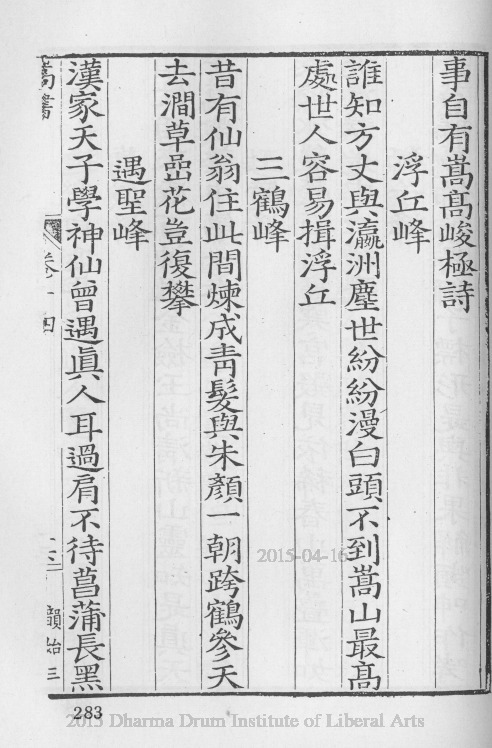 事自有嵩髙峻極詩
浮丘峰
誰知方丈與瀛洲塵世紛紛漫白頭不到嵩山最髙
處世人容易揖浮丘
三鶴峰
昔有仙翁住此間煉成靑髮與朱顏一朝跨鶴參天
去澗草嵒花豈復攀
遇聖峰
漢家天子學神仙曾遇眞人耳過肩不待菖蒲長黑
嵩書
卷十四
韻始三
2015-04-16
283
2015 Dharma Drum Institute of Liberal Arts